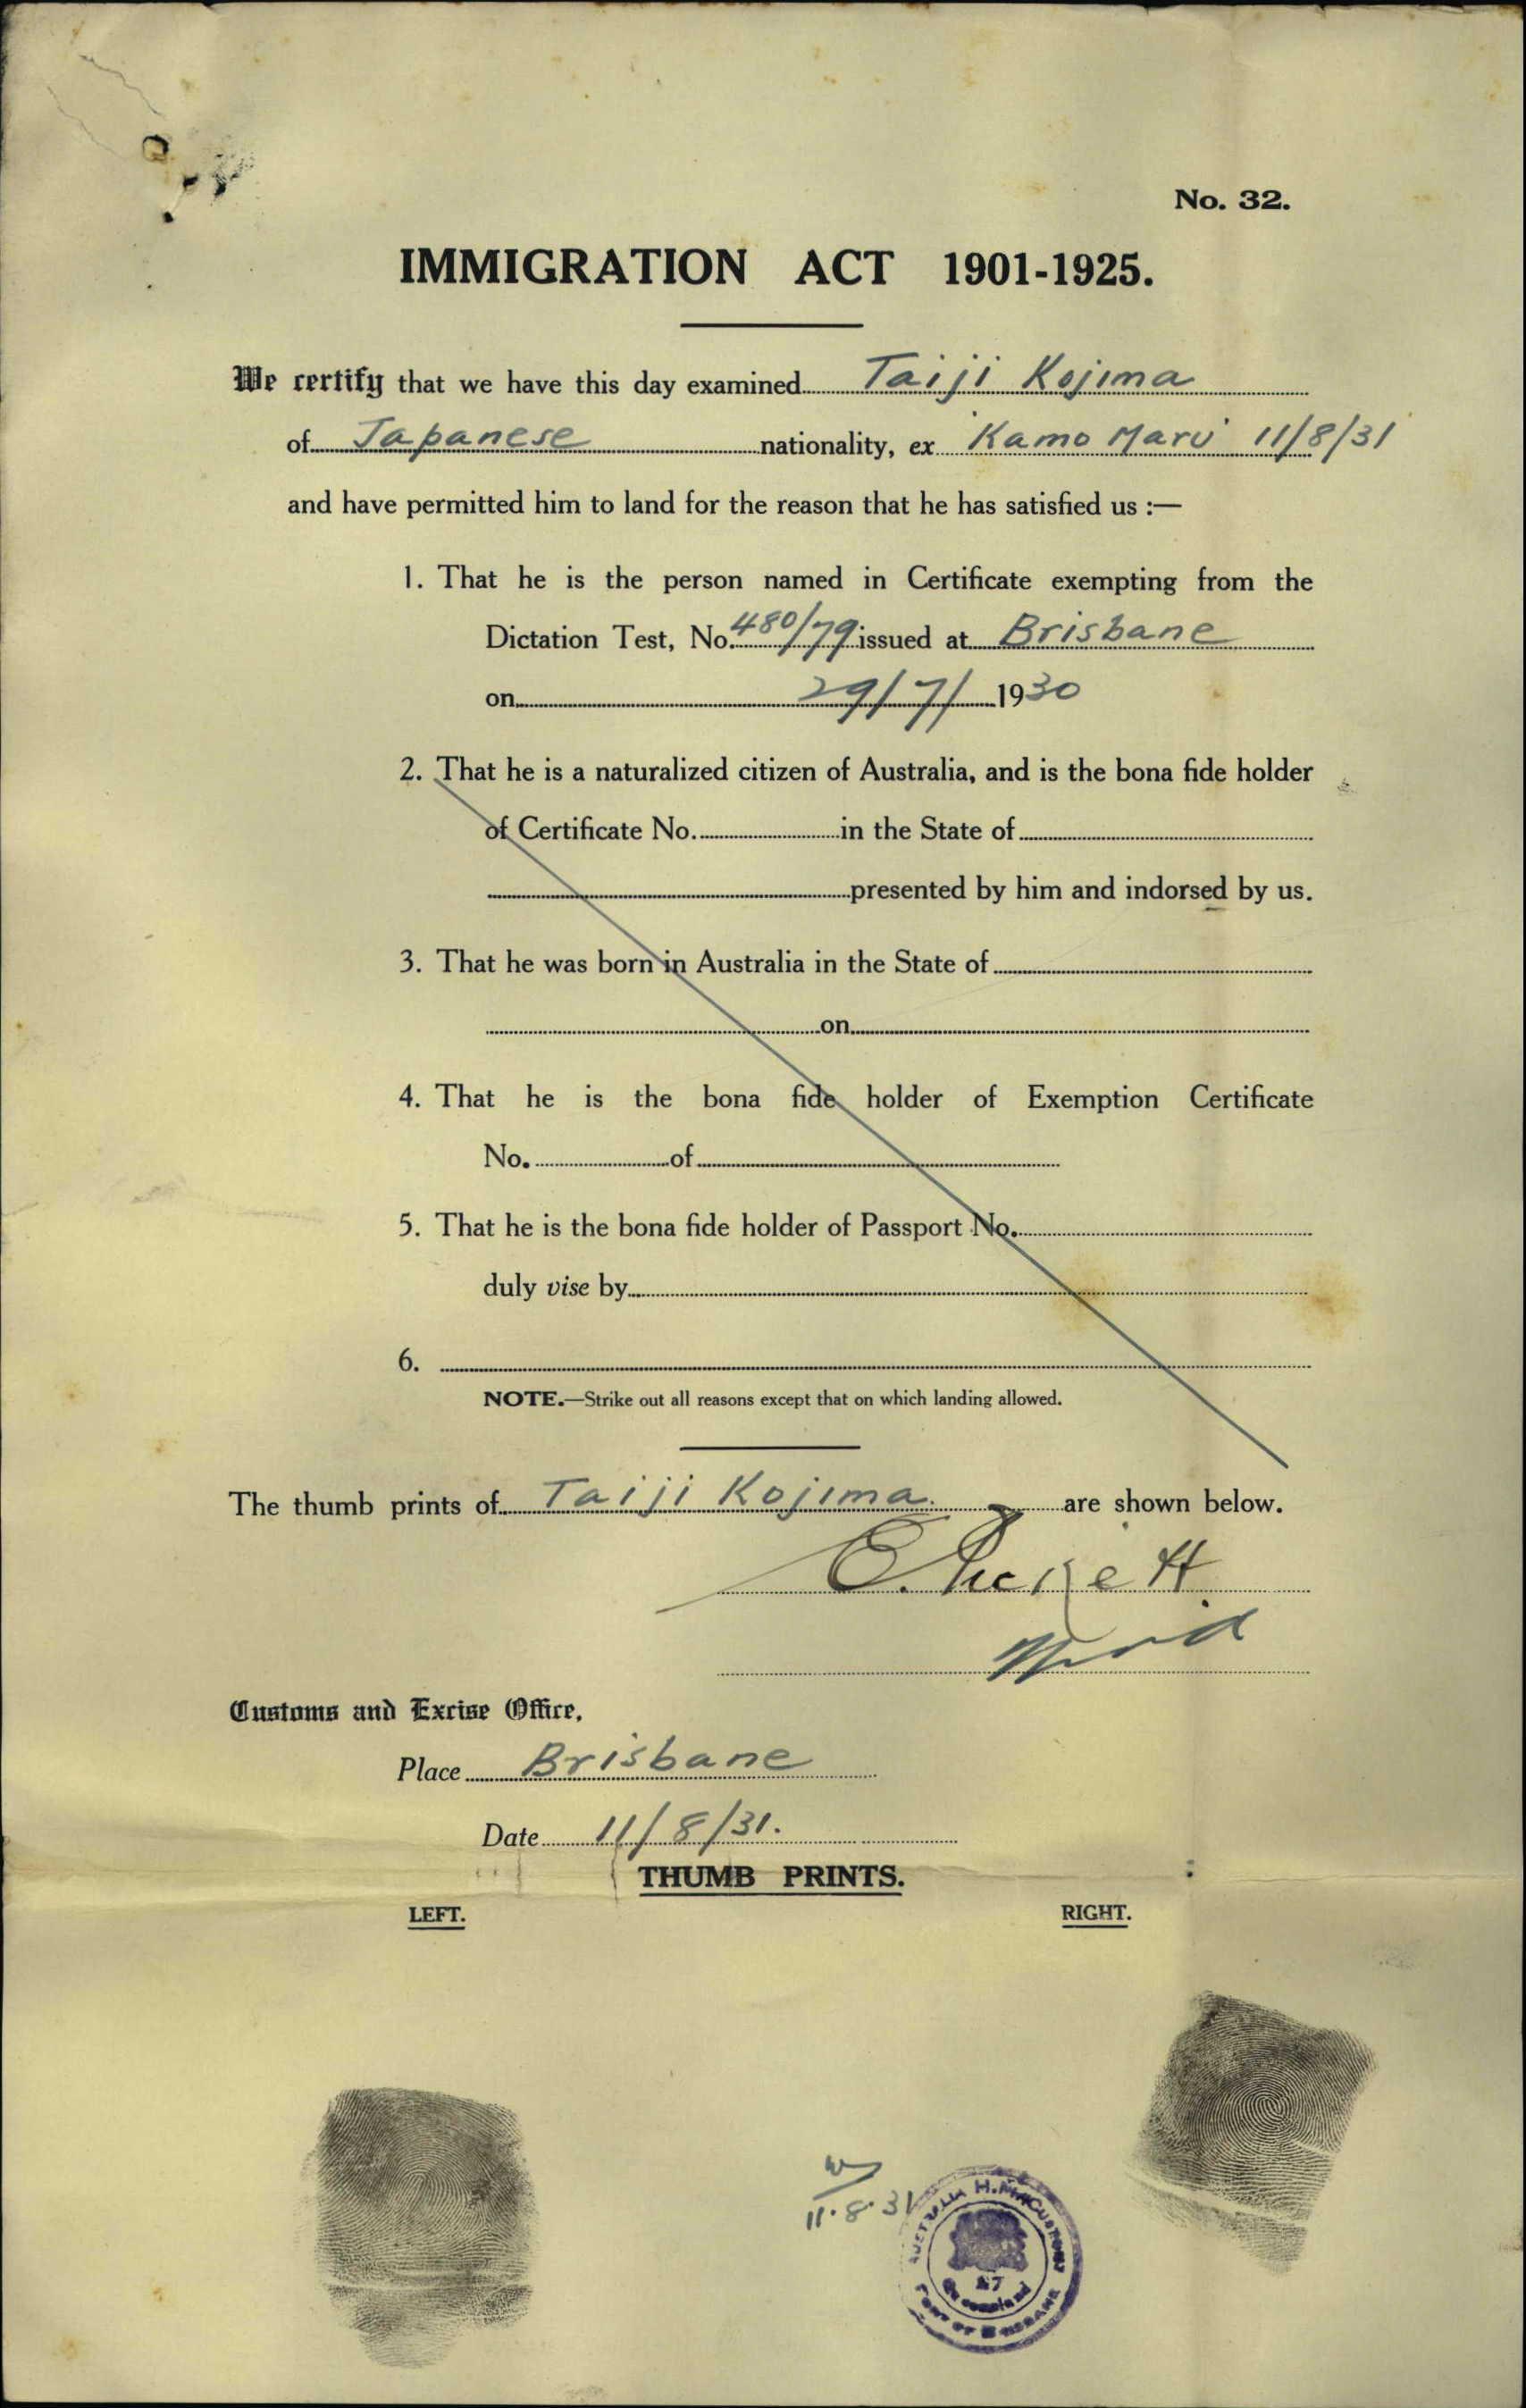 No. 32.
IMMIGRATION ACT 1901-1925.
We certify that we have this day examined Taiji Kojima
of Japanese nationality, ex "Kamo Maru" 11/8/31
and have permitted him to land for the reason that he has satisfied us :—
1. That he is the person named in Certificate exempting from the
Dictation Test, No. 480/79 issued at Brisbane
on 29/7/ 1930
2. That he is a naturalized citizen of Australia, and is the bona fide holder
of Certificate No. in the State of
presented by him and indorsed by us.
3. That he was born in Australia in the State of
on
4. That he is the bona fide holder of Exemption Certificate
No. of
5. That he is the bona fide holder of Passport No.
duly vise by
6.
NOTE.—Strike out all reasons except that on which landing allowed.
The thumb prints of Taiji Kojima. are shown below.
Customs and Excise Office,
Place Brisbane
Date 11/8/31.
THUMB PRINTS.
LEFT. RIGHT.
11.8.31
AUSTRALIA H.M. CUSTOMS
27
PORT OF BRISBANE